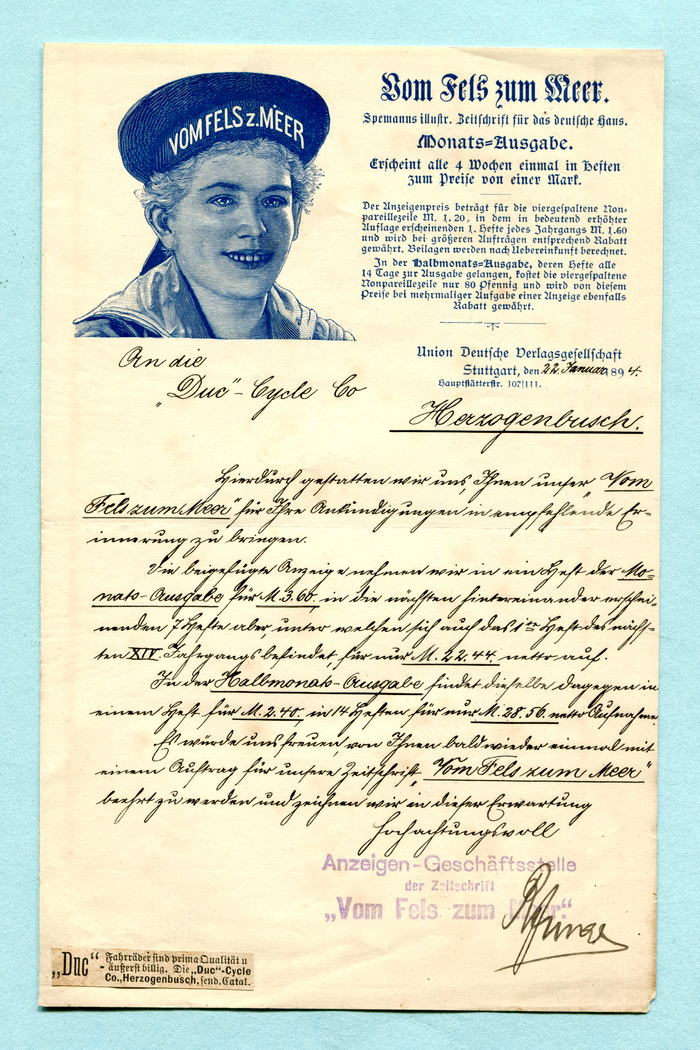 VOM FELS z. MEER
Vom Fels zum Meer.
Spemanns illustr. Zeitschrift für das deutsche Haus.
Monats=Ausgabe.
Erscheint alle 4 Wochen einmal in Heften
zum Preise von einer Mark.
Der Anzeigenpreis beträgt für die viergespaltene Non-
pareillezeile M. 1.20, in dem in bedeutend erhöhter
Auflage erscheinenden 1. Hefte jedes Jahrgangs M. 1.60
und wird bei größeren Aufträgen entsprechend Rabatt
gewährt. Beilagen werden nach Uebereinkunft berechnet.
In der Halbmonats=Ausgabe, deren Hefte alle
14 Tage zur Ausgabe gelangen, kostet die viergespaltene
Nonpareillezeile nur 80 Pfennig und wird von diesem
Preise bei mehrmaliger Aufgabe einer Anzeige ebenfalls
Rabatt gewährt.
Union Deutsche Verlagsgesellschaft
Stuttgart, den 22. Januar 1894.
Hauptstätterstr. 107/111.
An die
„Duc"-Cycle Co
Herzogenbusch.
Hierdurch gestatten wir uns, Ihnen unser „Vom
Fels zum Meer" für Ihre Ankündigungen in empfehlende Er=
innerung zu bringen.
Die beigefügte Anzeige nehmen wir in ein Heft der Mo=
nats-Ausgabe für M. 3.60. in die nächsten hintereinander erschei=
nenden 7 Hefte aber, unter welchen sich auch das 1te Heft des näch=
sten XIV. Jahrgangs befindet, für nur M. 22.44. netto auf.
In der Halbmonats-Ausgabe findet dieselbe dagegen in
einem Heft für M. 2.40. in 14 Heften für nur M. 28.56. netto Aufnahme
Es würde uns freuen, von Ihnen bald wieder einmal mit
einem Auftrag für unsere Zeitschrift „Vom Fels zum Meer"
beehrt zu werden und zeichnen wir in dieser Erwartung
Hochachtungsvoll
Anzeigen-Geschäftsstelle
der Zeitschrift
„Vom Fels zum Meer."
„Duc" Fahrräder sind prima Qualität u
- äußerst billig. Die „Duc"-Cycle
Co., Herzogenbusch, send. Catal.